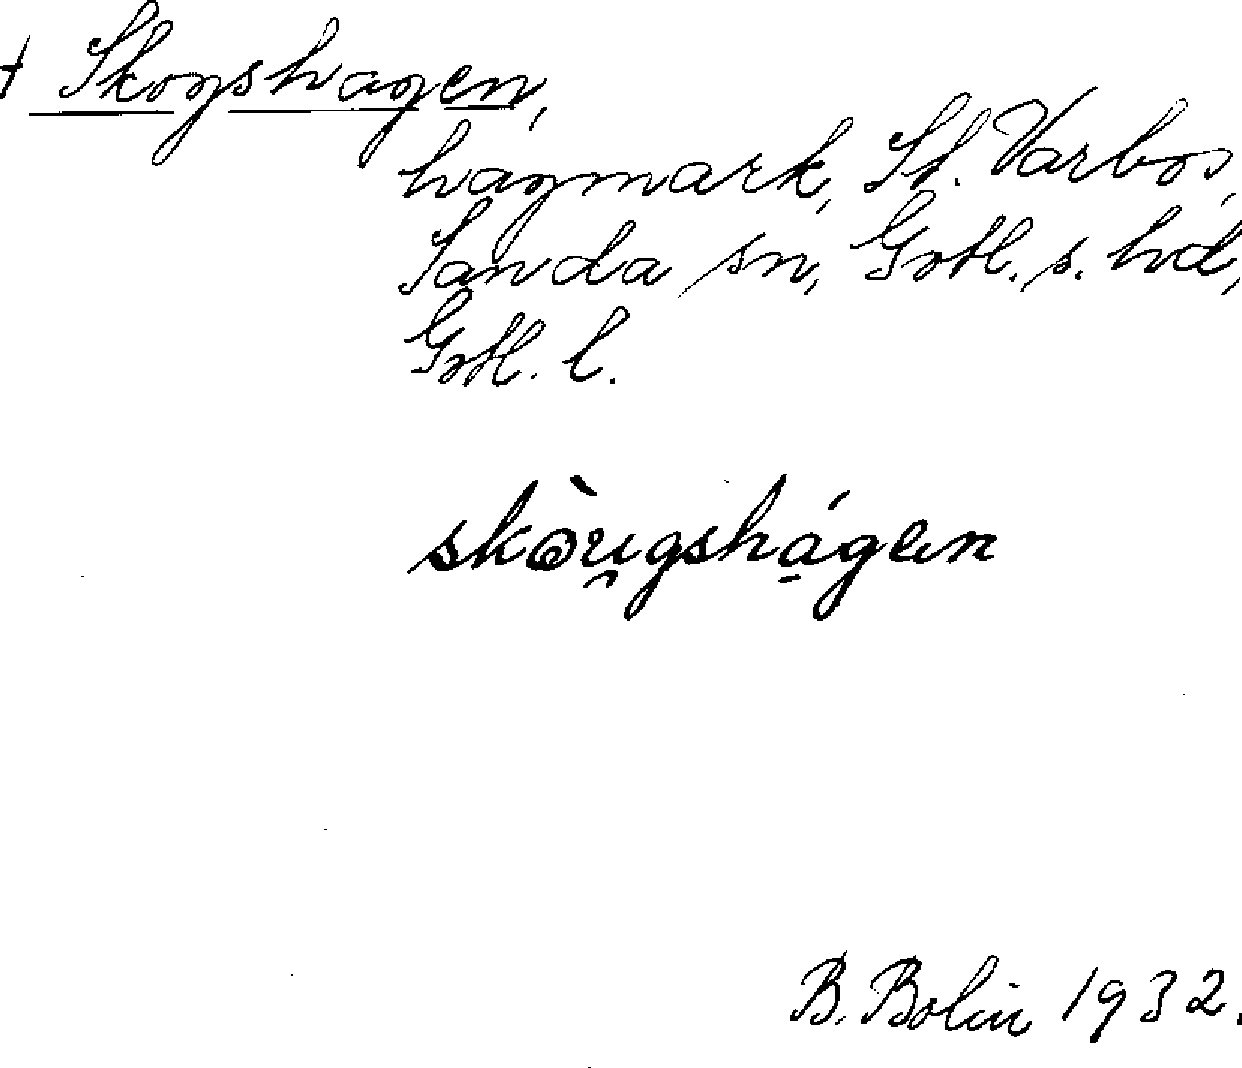 + Skogshagen,
hagmark, St. Varbos,
Sanda sn, Gotl. s. hd,
Gotl. l.
skòu̯gshá̠gen
B. Bolin 1932.